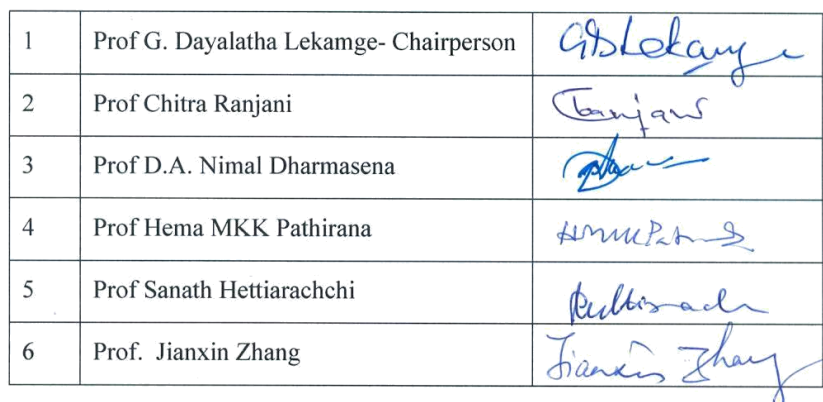 1 Prof G. Dayalatha Lekamge- Chairperson GDLekamge
2 Prof Chitra Ranjani CRanjani
3 Prof D.A. Nimal Dharmasena
4 Prof Hema MKK Pathirana
5 Prof Sanath Hettiarachchi
6 Prof. Jianxin Zhang Jianxin Zhang